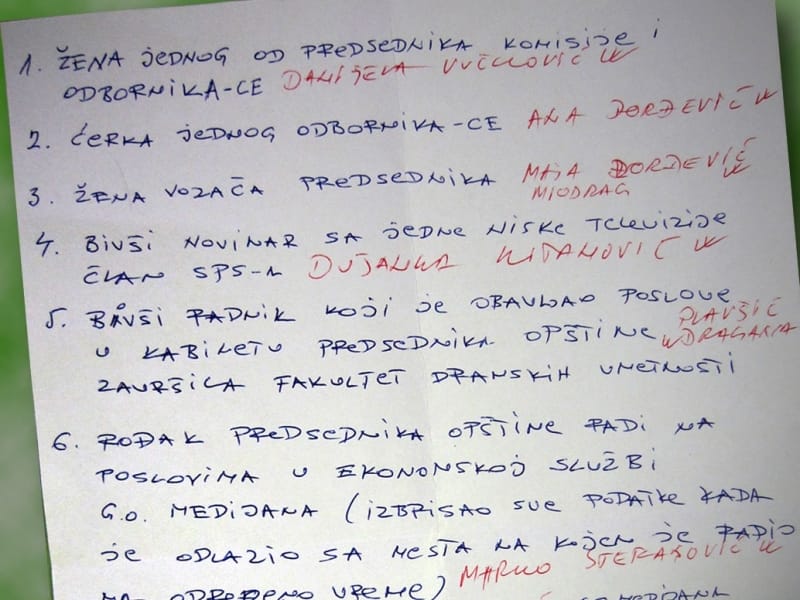 1. ŽENA JEDNOG OD PREDSEDNIKA KOMISIJE i
ODBORNIKA-CE DANIJELA VUČKOVIĆ
2. ĆERKA JEDNOG ODBORNIKA-CE ANA ĐORĐEVIĆ
3. ŽENA VOZAČA PREDSEDNIKA MAJA ĐORĐEVIĆ
MIODRAG
4. BIVŠI NOVINAR SA JEDNE NIŠKE TELEVIZIJE
ČLAN SPS-A DUŠANKA
5. BIVŠI RADNIK KOJI JE OBAVLJAO POSLOVE
PLAVŠIĆ
U KABINETU PREDSEDNIKA OPŠTINE DRAGANA
ZAVRŠILA FAKULTET DRAMSKIH UMETNOSTI
6. ROĐAK PREDSEDNIKA OPŠTINE RADI NA
POSLOVIMA U EKONOMSKOJ SLUŽBI
G.O. MEDIJANA (IZBRISAO SVE PODATKE KADA
JE ODLAZIO SA MESTA NA KOJEM JE RADIO
NA ODREĐENO VREME) MARKO
MEDIJANA